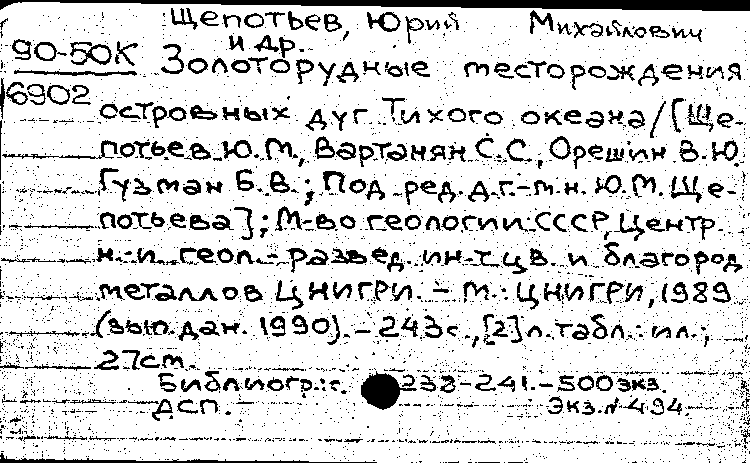 Щепотьев, Юрий Михайлович
и др.
90-50К Золоторудные месторождения
6902 островных дуг Тихого океана/[Ще-
потьев Ю.М., Вартанян С.С., Орешин В.Ю.
Гузман Б.В.; Под ред. д.г.-м.н. Ю.М. Ще-
потьева]; М-во геологии СССР, Центр.
н.-и. геол.-развед. ин-т цв. и благород
металлов ЦНИГРИ. - М.: ЦНИГРИ, 1989
(вып. дан. 1990). - 243с., [2]л. табл.: ил.;
27см.
Библиогр.: с. 238-241. - 500экз.
ДСП. Экз. № 494